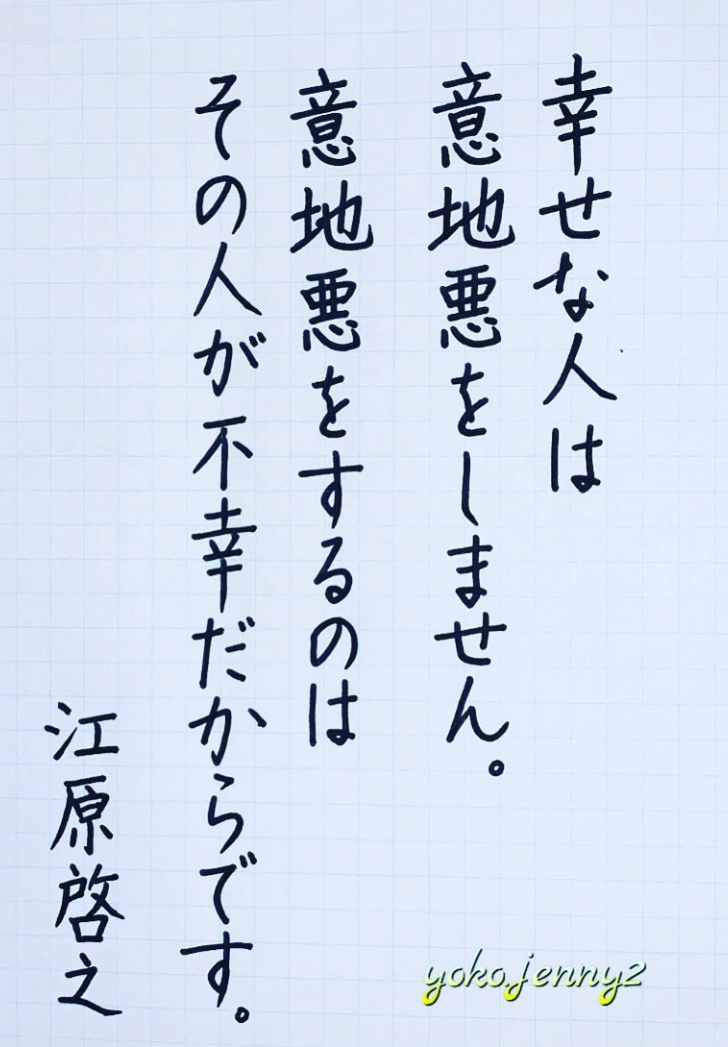 幸せな人は
意地悪をしません。
意地悪をするのは
その人が不幸だからです。
江原啓之
yoko.jenny2